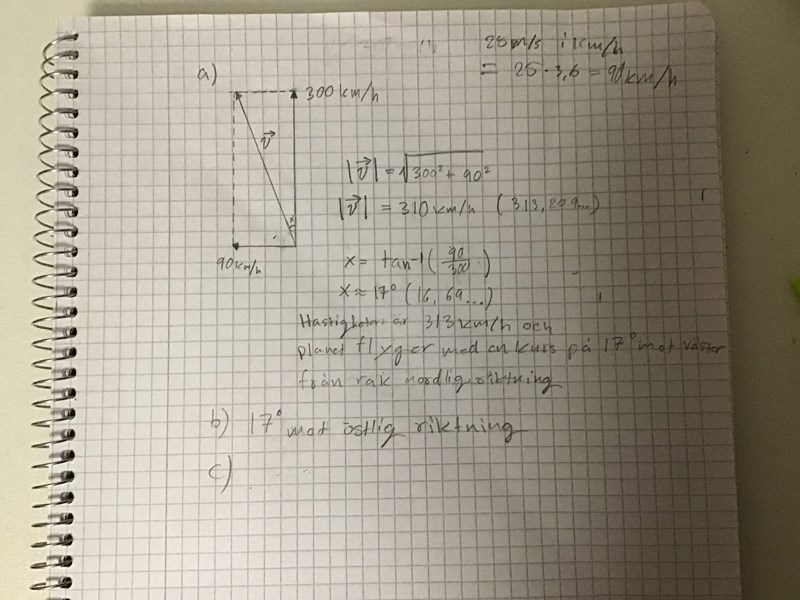 25 m/s i km/h
= 25 · 3,6 = 90 km/h
a)
300 km/h
v⃗
x
90 km/h
|v⃗| = √300² + 90²
|v⃗| = 310 km/h (313,209...)
x = tan-1(90/300)
x ≈ 17° (16,69...)
Hastigheten är 313 km/h och
planet flyger med en kurs på 17° mot väster
från rak nordlig riktning
b) 17° mot östlig riktning
c)